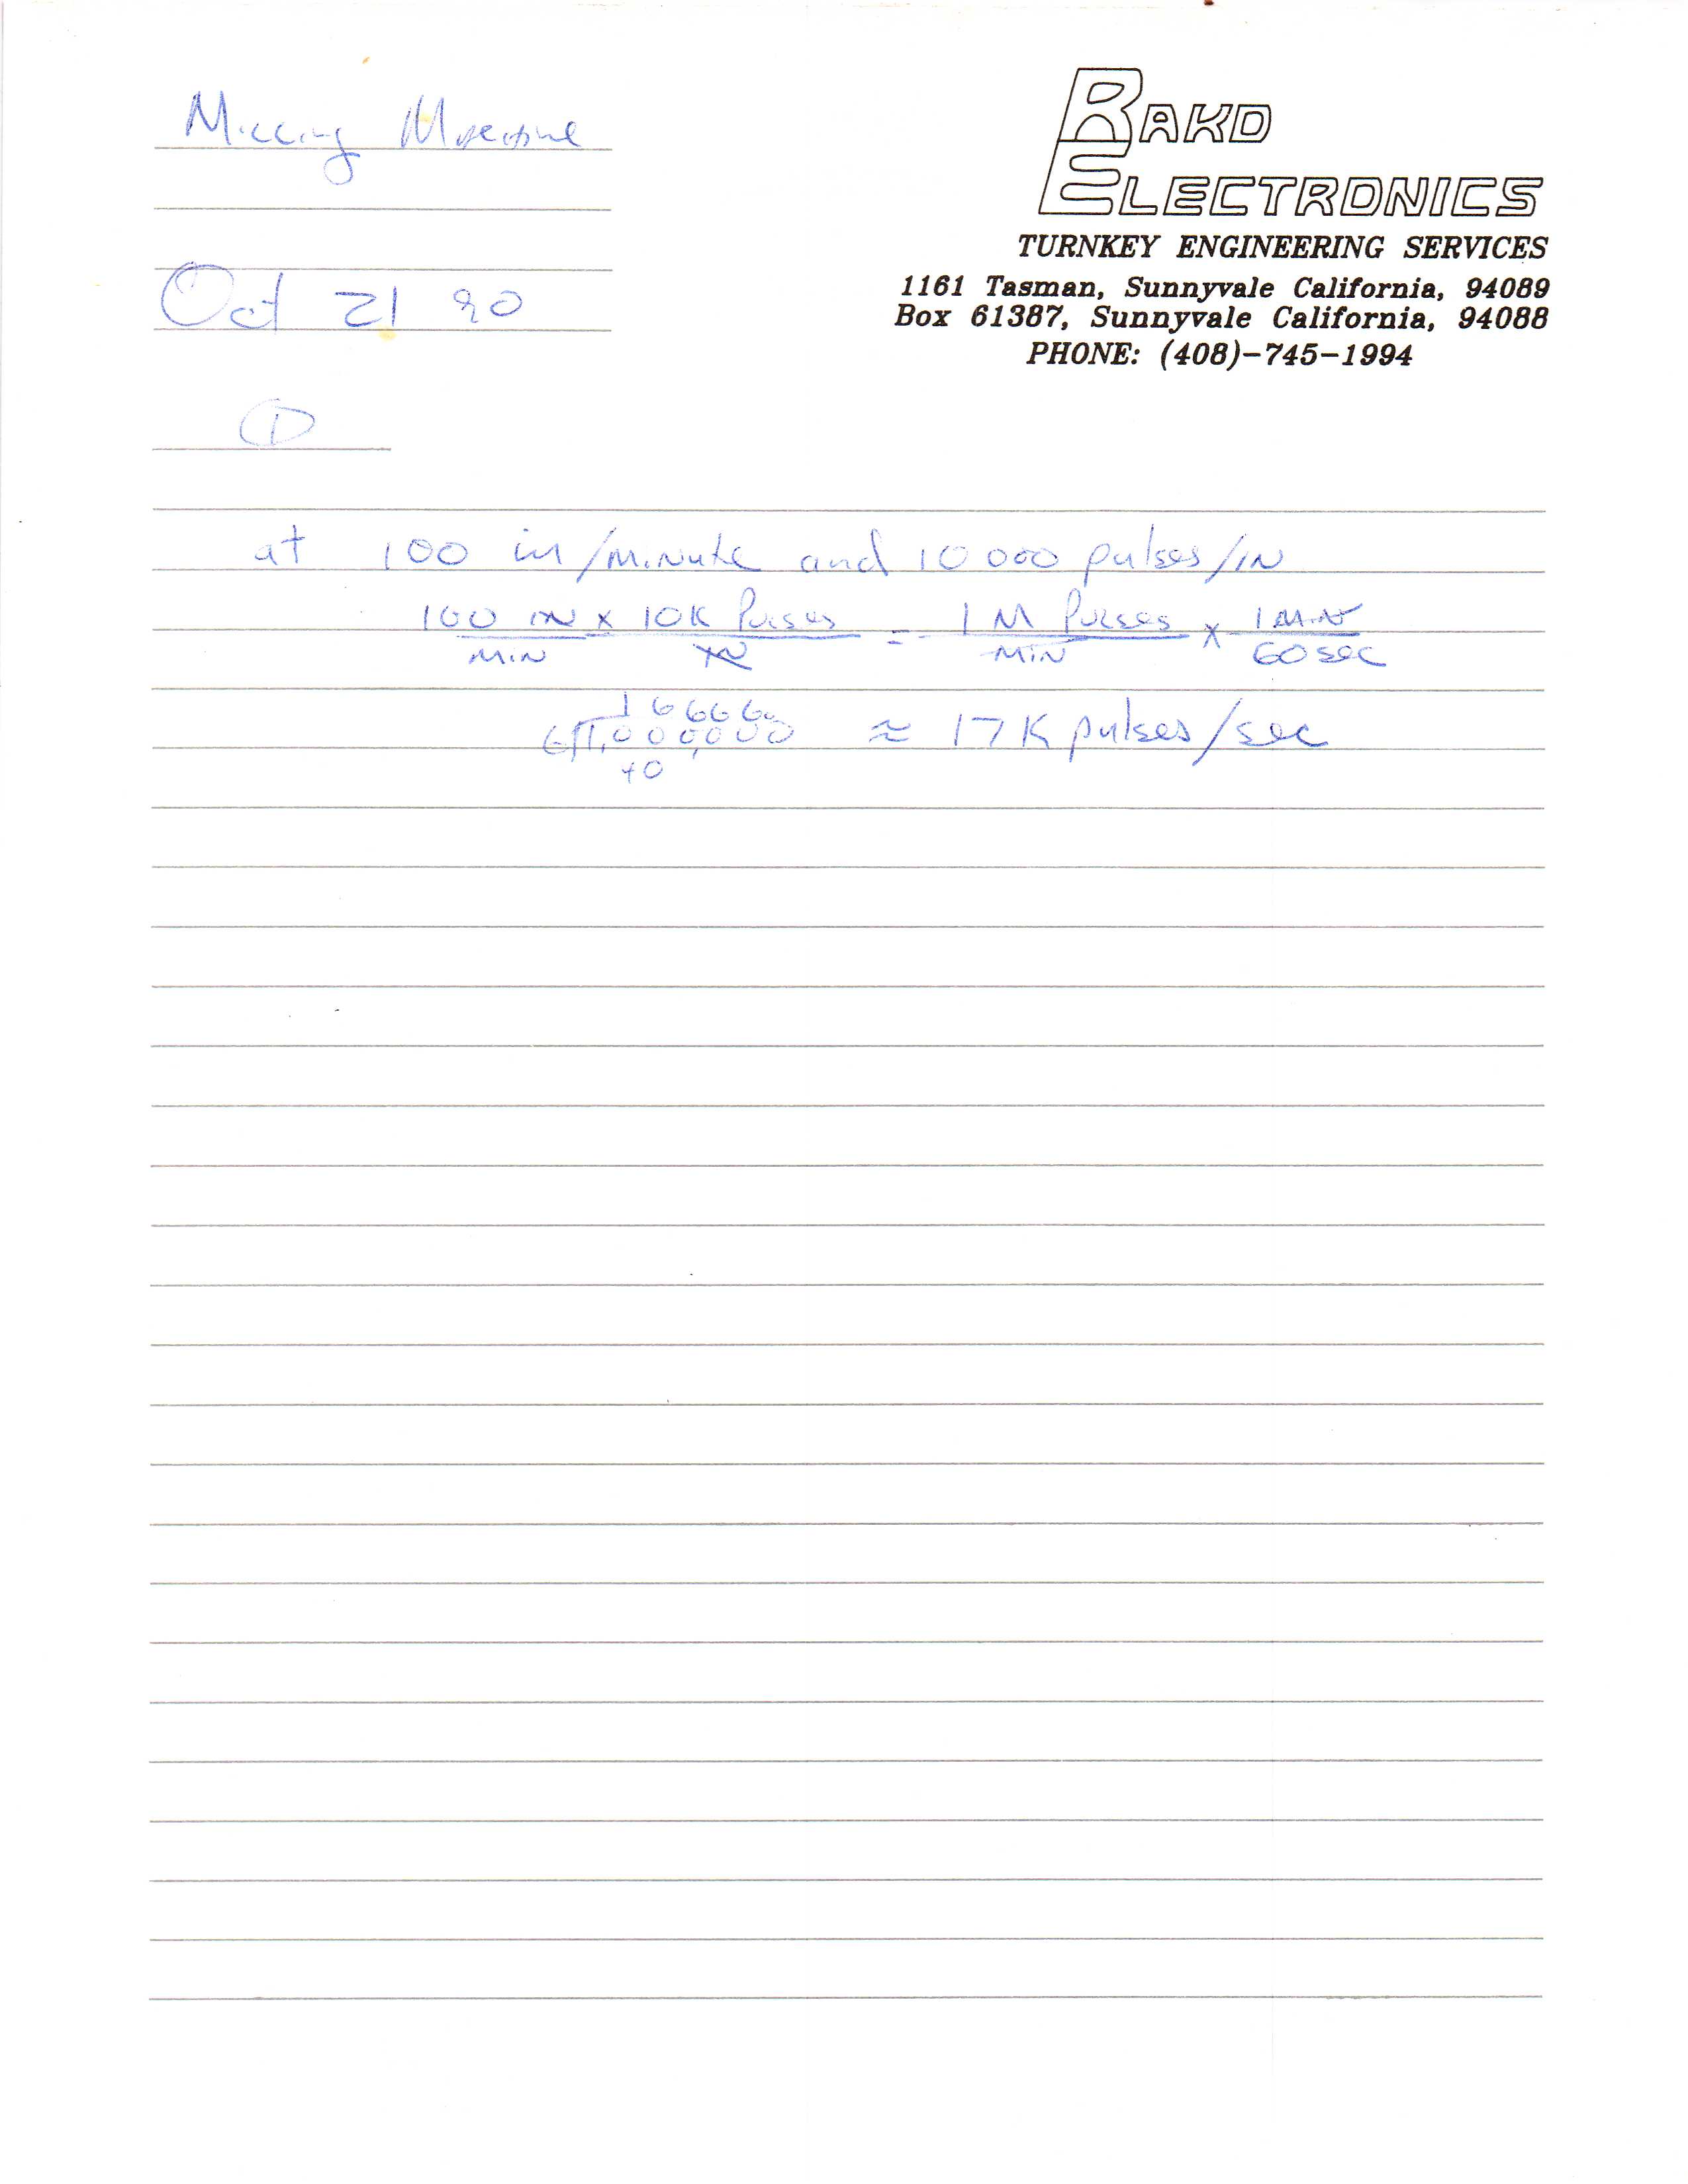 Milling Machine
RAKO
ELECTRONICS
TURNKEY ENGINEERING SERVICES
1161 Tasman, Sunnyvale California, 94089
Box 61387, Sunnyvale California, 94088
PHONE: (408)-745-1994
Oct 21 90
1
at 100 in/minute and 10 000 pulses/IN
100 IN x 10K Pulses = 1 M Pulses x 1 MIN
MIN IN MIN 60 sec
1 6 6 6 6
1,000,000 ≈ 17K pulses/sec
40